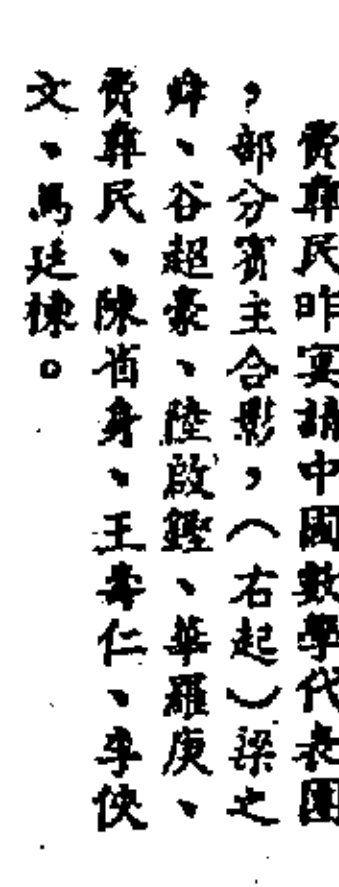 費彝民昨宴請中國數學代表團
，部分賓主合影，（右起）梁之
舜、谷超豪、陸啟鏗、華羅庚、
費彝民、陳省身、王壽仁、李俠
文、馬廷棟。